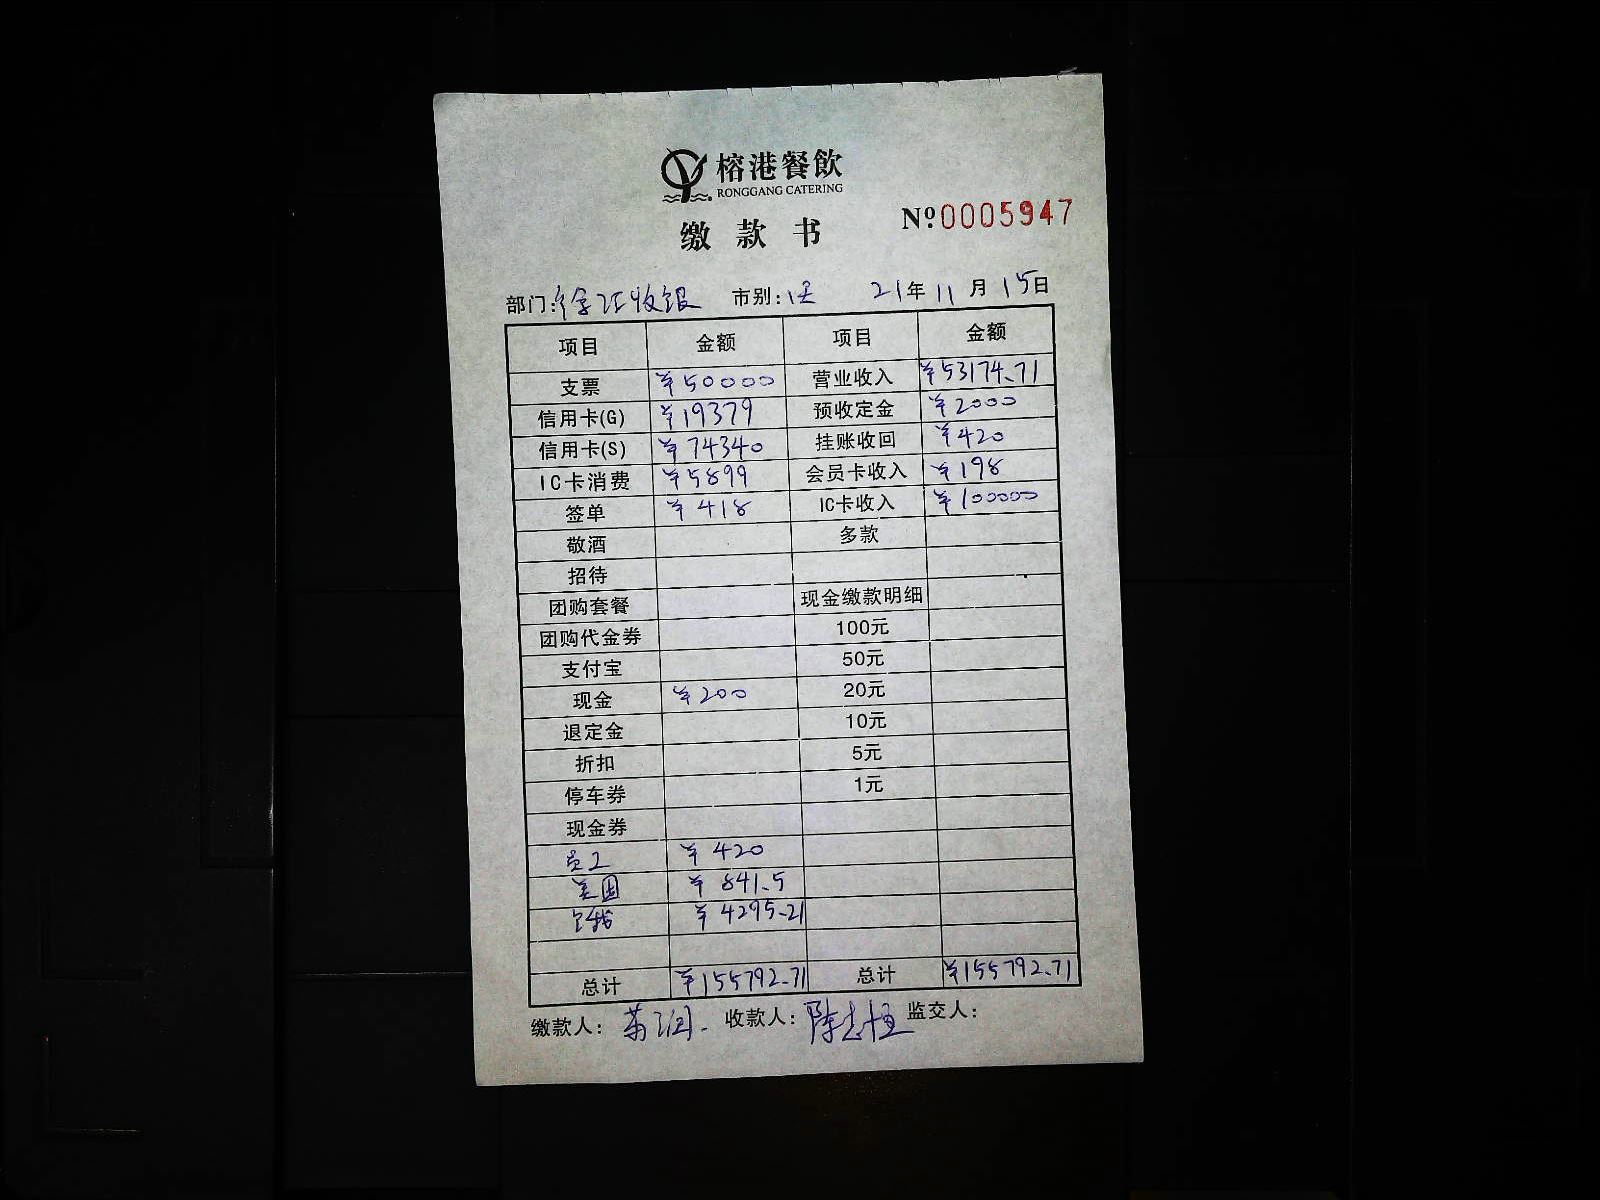 榕港餐飲
RONGGANG CATERING
缴款书
Nº:0005947
部门: 收银 市别: 21年11月15日
项目 金额 项目 金额
支票 ¥50000 营业收入 ¥53174.71
信用卡(G) ¥19379 预收定金 ¥2000
信用卡(S) ¥74340 挂账收回 ¥420
IC卡消费 ¥5899 会员卡收入 ¥198
签单 ¥418 IC卡收入 ¥100000
敬酒 多款
招待
团购套餐 现金缴款明细
团购代金券 100元
支付宝 50元
现金 ¥200 20元
退定金 10元
折扣 5元
停车券 1元
现金券
员工 ¥420
美团 ¥841.5
¥4295.21
总计 ¥155792.71 总计 ¥155792.71
缴款人: 收款人: 陈志恒 监交人: